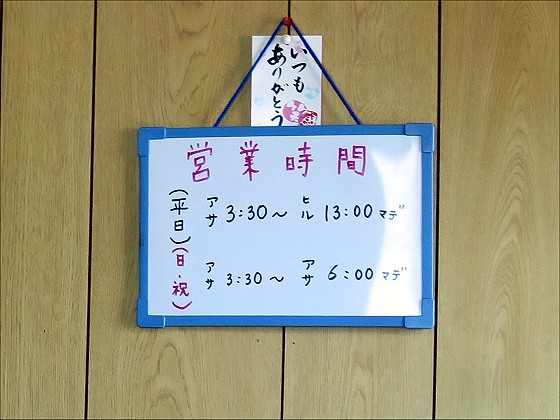 いつも
ありがとう
営業時間
(平日) アサ 3:30〜 ヒル 13:00 マデ
(日・祝) アサ 3:30〜 アサ 6:00 マデ